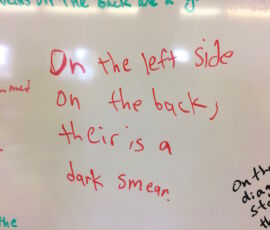 on the back are a
On the left side
on the back,
their is a
dark smear.
On th
the